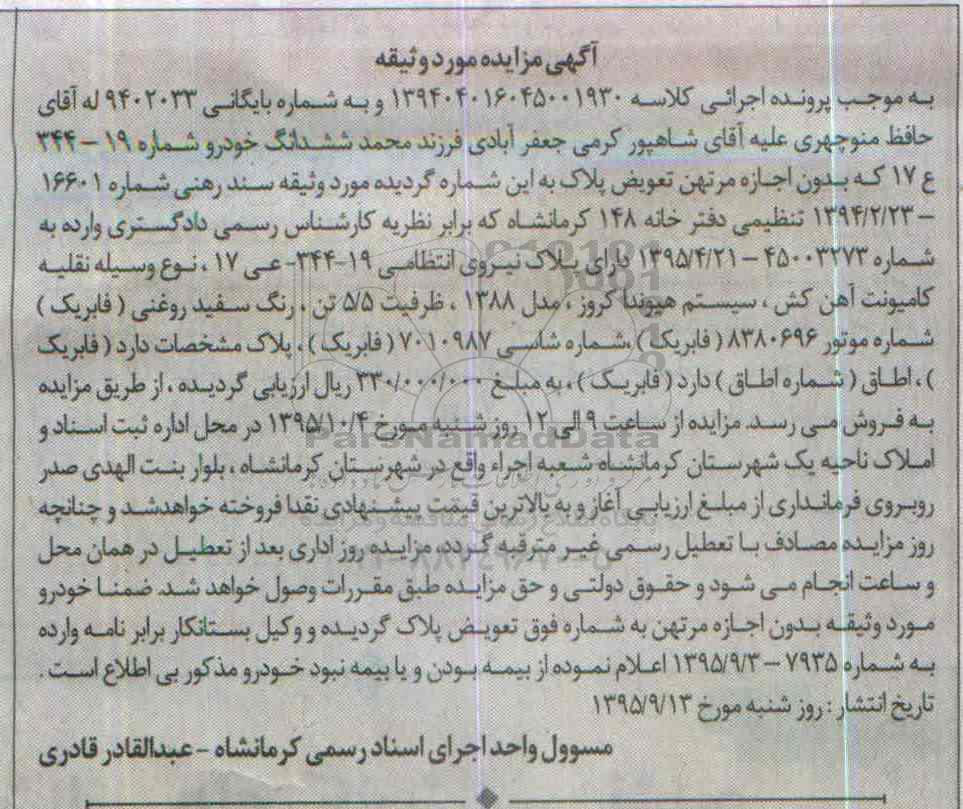 آگهی مزایده مورد وثیقه
به موجب پرونده اجرائی کلاسه ۱۳۹۴۰۴۰۱۶۰۴۵۰۰۱۹۳۰ و به شماره بایگانی ۹۴۰۲۰۳۳ له آقای
حافظ منوچهری علیه آقای شاهپور کرمی جعفر آبادی فرزند محمد ششدانگ خودرو شماره ۱۹ – ۳۴۴
ع ۱۷ که بدون اجازه مرتهن تعویض پلاک به این شماره گردیده مورد وثیقه سند رهنی شماره ۱۶۶۰۱
– ۱۳۹۴/۲/۲۳ تنظیمی دفتر خانه ۱۴۸ کرمانشاه که برابر نظریه کارشناس رسمی دادگستری وارده به
شماره ۴۵۰۰۳۲۷۳ – ۱۳۹۵/۴/۲۱ دارای پلاک نیروی انتظامی ۱۹-۳۴۴- عی ۱۷ ، نوع وسیله نقلیه
کامیونت آهن کش ، سیستم هیوندا کروز ، مدل ۱۳۸۸ ، ظرفیت ۵/۵ تن ، رنگ سفید روغنی ( فابریک )
شماره موتور ۸۳۸۰۶۹۶ ( فابریک ) ،شماره شاسی ۷۰۱۰۹۸۷ ( فابریک ) ، پلاک مشخصات دارد ( فابریک
) ، اطاق ( شماره اطاق ) دارد ( فابریک ) ، به مبلغ ۳۳۰/۰۰۰/۰۰۰ ریال ارزیابی گردیده ، از طریق مزایده
به فروش می رسد. مزایده از ساعت ۹ الی ۱۲ روز شنبه مورخ ۱۳۹۵/۱۰/۴ در محل اداره ثبت اسناد و
املاک ناحیه یک شهرستان کرمانشاه شعبه اجراء واقع در شهرستان کرمانشاه ، بلوار بنت الهدی صدر
روبروی فرمانداری از مبلغ ارزیابی آغاز و به بالاترین قیمت پیشنهادی نقدا فروخته خواهدشد و چنانچه
روز مزایده مصادف با تعطیل رسمی غیر مترقبه گردد، مزایده روز اداری بعد از تعطیل در همان محل
و ساعت انجام می شود و حقوق دولتی و حق مزایده طبق مقررات وصول خواهد شد. ضمنا خودرو
مورد وثیقه بدون اجازه مرتهن به شماره فوق تعویض پلاک گردیده و وکیل بستانکار برابر نامه وارده
به شماره ۷۹۳۵ – ۱۳۹۵/۹/۳ اعلام نموده از بیمه بودن و یا بیمه نبود خودرو مذکور بی اطلاع است .
تاریخ انتشار : روز شنبه مورخ ۱۳۹۵/۹/۱۳
مسوول واحد اجرای اسناد رسمی کرمانشاه - عبدالقادر قادری